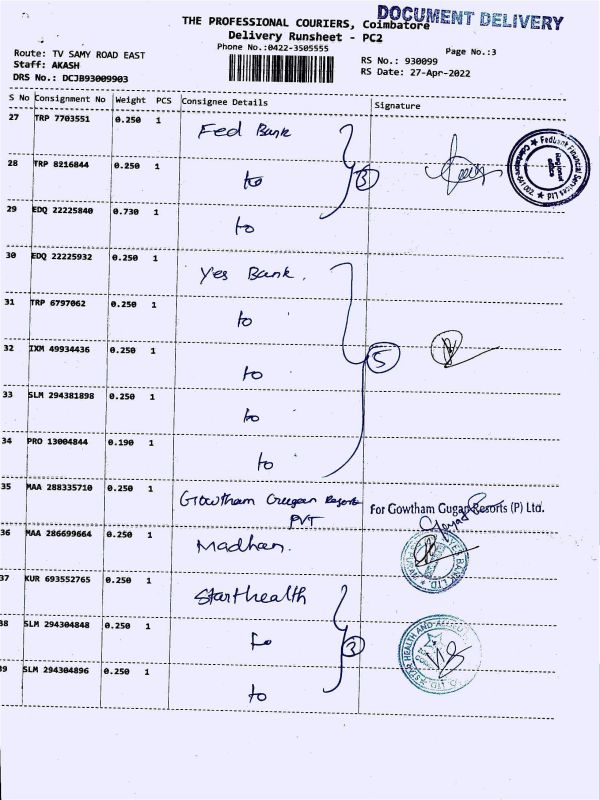 DOCUMENT DELIVERY
THE PROFESSIONAL COURIERS, Coimbatore
Delivery Runsheet - PC2
Phone No.:0422-3505555
Page No.:3
Route: TV SAMY ROAD EAST
RS No.: 930099
Staff: AKASH
RS Date: 27-Apr-2022
DRS No.: DCJB93009903
S No Consignment No Weight PCS Consignee Details Signature
27 TRP 7703551 0.250 1 Fed Bank
28 TRP 8216844 0.250 1 to 3
Fedbank Financial Services Ltd
29 EDQ 22225840 0.730 1 to
30 EDQ 22225932 0.250 1 Yes Bank.
31 TRP 6797062 0.250 1 to
32 IXM 49934436 0.250 1 to 5
33 SLM 294381898 0.250 1 to
34 PRO 13004844 0.190 1 to
35 MAA 288335710 0.250 1 Gowtham Gugan Resorts
PVT
For Gowtham Gugan Resorts (P) Ltd.
36 MAA 286699664 0.250 1 Madhan.
YES BANK LTD.
37 KUR 693552765 0.250 1 Starhealth
38 SLM 294304848 0.250 1 to 3
STAR HEALTH AND
39 SLM 294304896 0.250 1 to